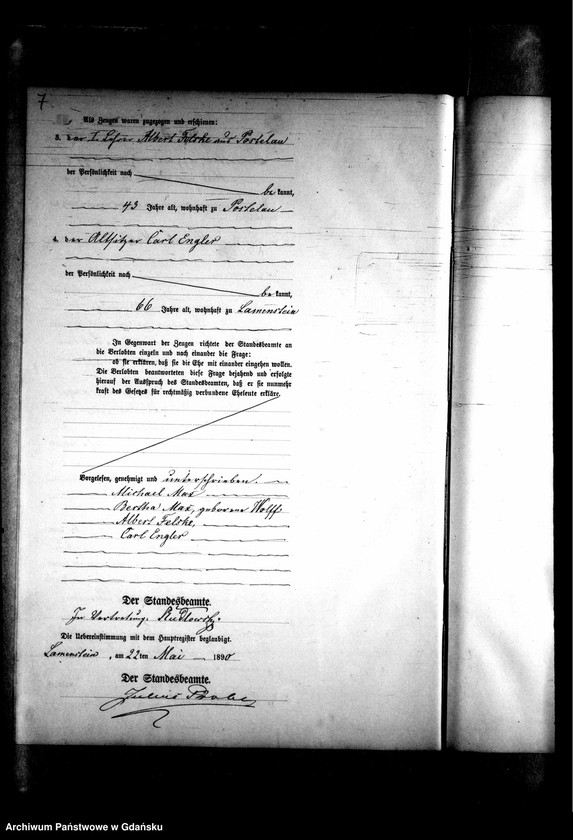 7
Als Zeugen waren zugezogen und erschienen:
3. der I. Lehrer Albert Felske aus Postelau
der Persönlichkeit nach
be kannt,
43 Jahre alt, wohnhaft zu Postelau
4. der Altsitzer Carl Engler
der Persönlichkeit nach
be kannt,
66 Jahre alt, wohnhaft zu Lamenstein
In Gegenwart der Zeugen richtete der Standesbeamte an
die Verlobten einzeln und nach einander die Frage:
ob sie erklären, daß sie die Ehe mit einander eingehen wollen.
Die Verlobten beantworteten diese Frage bejahend und erfolgte
hierauf der Ausspruch des Standesbeamten, daß er sie nunmehr
kraft des Gesetzes für rechtmäßig verbundene Eheleute erkläre.
Vorgelesen, genehmigt und unterschrieben.
Michael Max
Bertha Max, geborene Wolff
Albert Felske,
Carl Engler
Der Standesbeamte.
In Vertretung.
Die Uebereinstimmung mit dem Hauptregister beglaubigt.
Lamenstein, am 22ten Mai 1890
Der Standesbeamte.
Julius
Archiwum Państwowe w Gdańsku